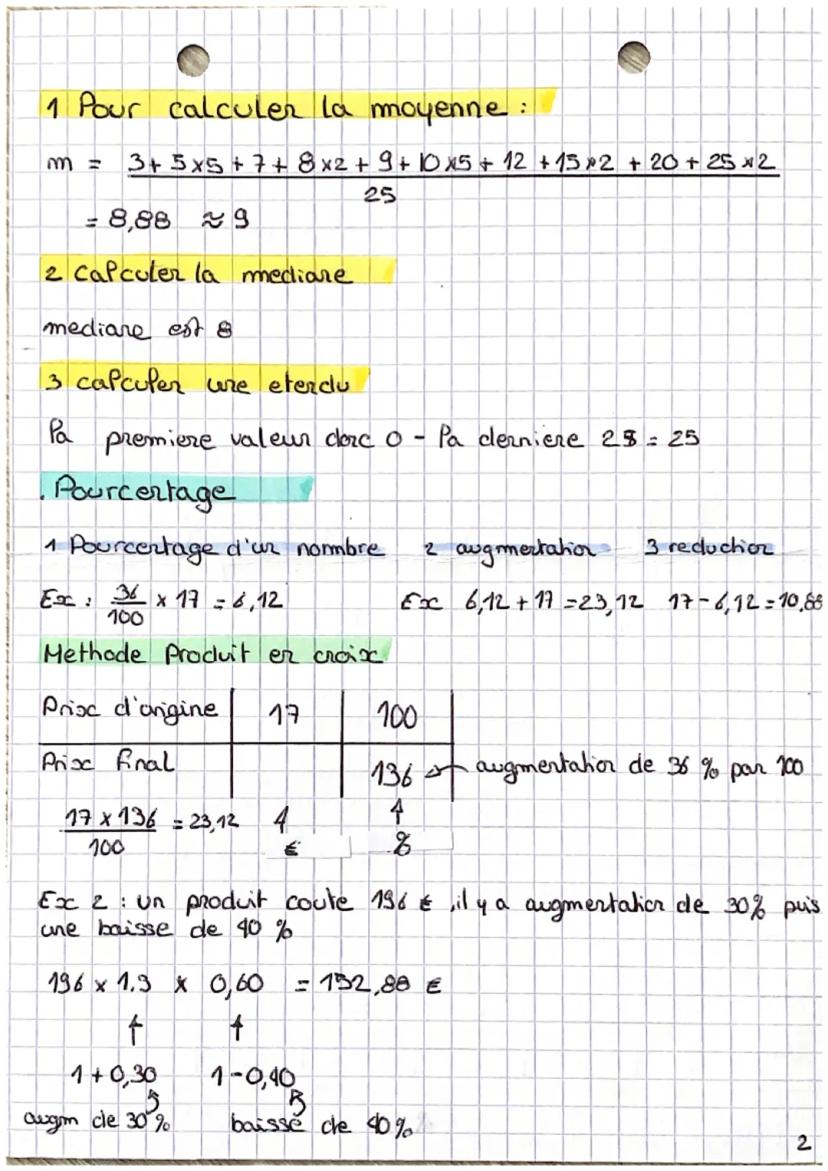 1 Pour calculer la moyenne :
m = 3 + 5 x 5 + 7 + 8 x 2 + 9 + 10 x 5 + 12 + 15 x 2 + 20 + 25 x 2
25
= 8,88 ≈ 9
2 Calculer la mediane
mediane est 8
3 calculer une etendu
la premiere valeur donc 0 - la derniere 25 = 25
. Pourcentage
1 Pourcentage d'un nombre 2 augmentation 3 reduction
Ex : 36/100 x 17 = 6,12 Ex 6,12 + 17 = 23,12 17 - 6,12 = 10,88
Methode Produit en croix
Prix d'origine 17 100
Prix final 136 augmentation de 36 % par 100
17 x 136 / 100 = 23,12
€ %
Ex 2 : un produit coute 196 €, il y a augmentation de 30% puis
une baisse de 40 %
196 x 1.3 x 0,60 = 152,88 €
1 + 0,30 1 - 0,40
augm de 30 % baisse de 40 %
2